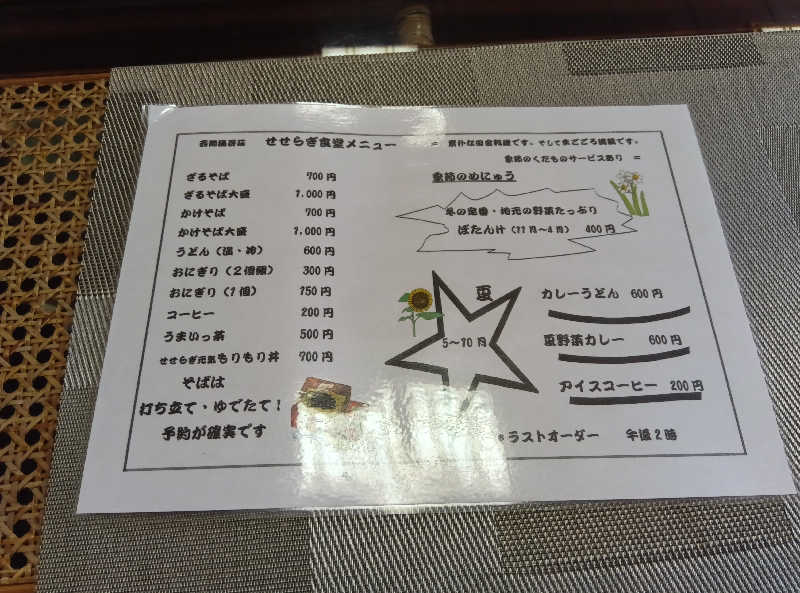 せせらぎ食堂メニュー
= 素朴な田舎料理です。そしてまごころ満載です。
季節のくだものサービスあり =
ざるそば 700円
ざるそば大盛 1,000円
かけそば 700円
かけそば大盛 1,000円
うどん（温・冷） 600円
おにぎり（2個組） 300円
おにぎり（1個） 150円
コーヒー 200円
うまいっ茶 500円
せせらぎ元気もりもり丼 700円
そばは
打ち立て・ゆでたて！
予約が確実です
季節のめにゅう
冬の定番・地元の野菜たっぷり
ぼたん汁（11月～4月） 400円
夏
5～10月
カレーうどん 600円
夏野菜カレー 600円
アイスコーヒー 200円
ラストオーダー 午後2時